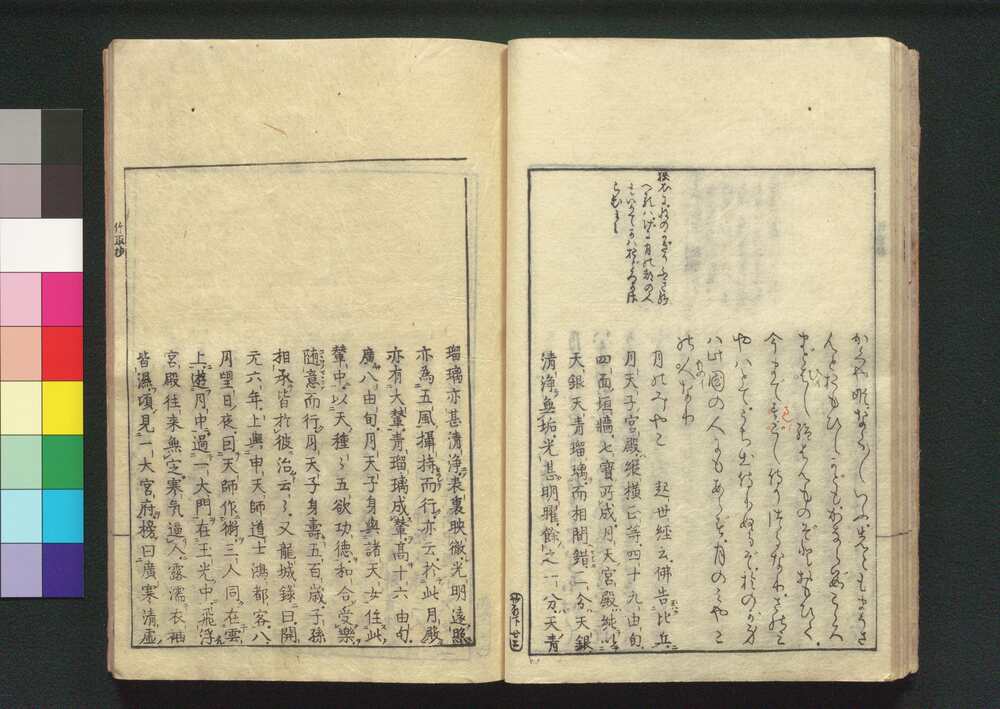 かくや姫なく〳〵いふ先〳〵も申さ
んとおもひしかどもかならず心ま
どはし給はんものぞとおもひて
今まですごし侍りつるなりさのみ
やはとてうち出侍りぬるぞおのが身
は此國の人にもあらず月のみやこ
の人なり
月のみやこ 起世經云佛告比丘
月天子宮殿縱横正等四十九由旬
四面垣墻七寶所成月天宮殿純以
天銀天青瑠璃而相間錯二分天銀
清浄無垢光甚明曜餘之一分天青
瑠璃亦甚清浄表裏映徹光明遠照
亦為五風攝持而行亦云於此月殿
亦有大輦青瑠璃成輦髙十六由旬
廣八由旬月天子身與諸天女住此
輦中以天種〻五欲功徳和合受樂
随意而行月天子身壽五百歳子孫
相承皆於彼治云〻又龍城錄曰開
元六年上與申天師道士鴻都客八
月望日夜因天師作術三人同在雲
上遊月中過一大門在玉光中飛浮
宮殿往来無定寒気逼人露濡衣袖
皆濕頃見一大宮府榜曰廣寒清虚
竹取抄